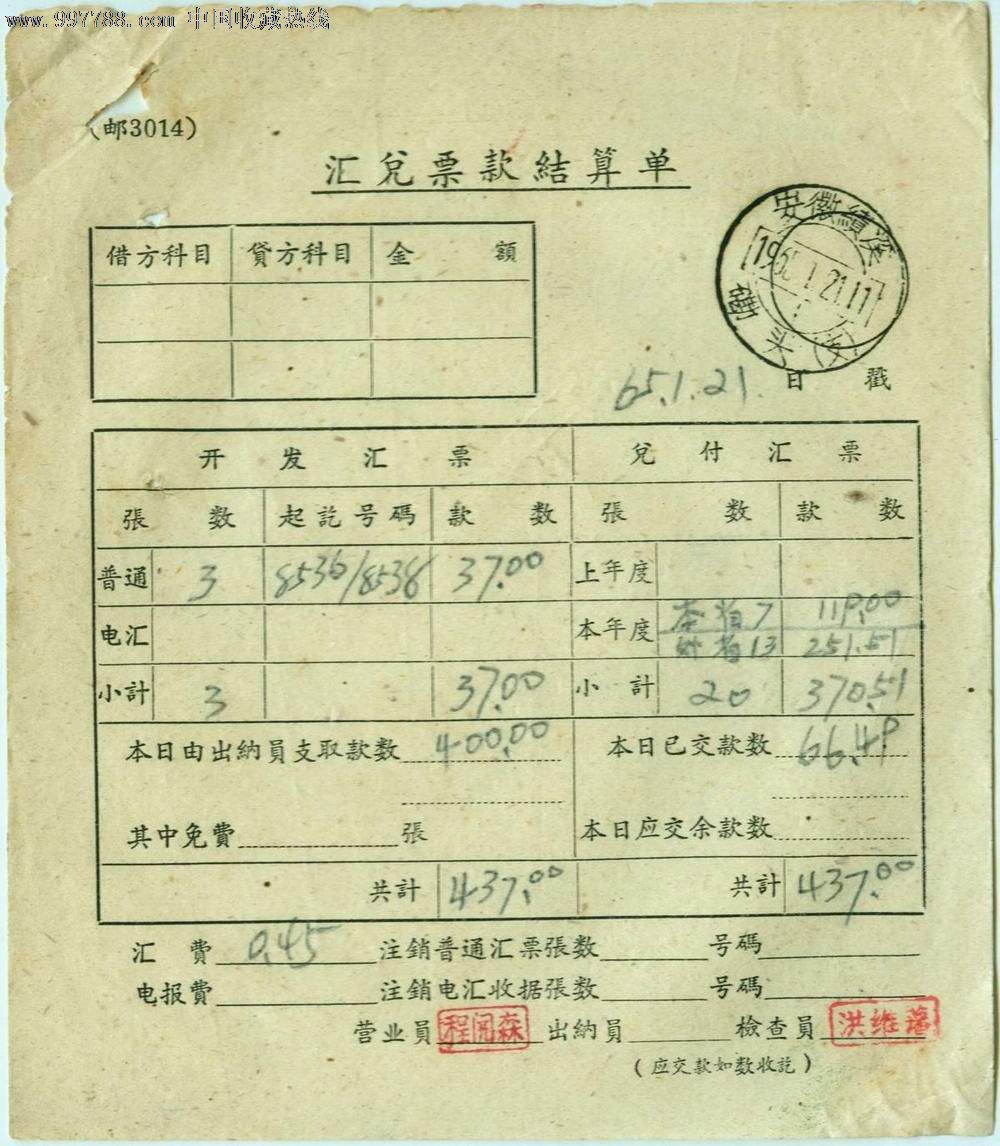 www.997788.com 中国收藏热线
(邮3014)
汇兌票款結算单
安徽績溪
1965.1.21.17
头
借方科目 貸方科目 金 額
65.1.21. 日 戳
开发汇票 兌付汇票
張数 起訖号碼 款数 張数 款数
普通 3 8536/8538 37.00 上年度
电汇 本年度 本省7 119.00
外省13 251.51
小計 3 37.00 小計 20 370.51
本日由出納員支取款数 400.00 本日已交款数 66.49
其中免費 張 本日应交余款数
共計 437.00 共計 437.00
汇費 0.45 注銷普通汇票張数 号碼
电报費 注銷电汇收据張数 号碼
营业員 程闻森 出納員 檢查員 洪维藩
(应交款如数收訖)